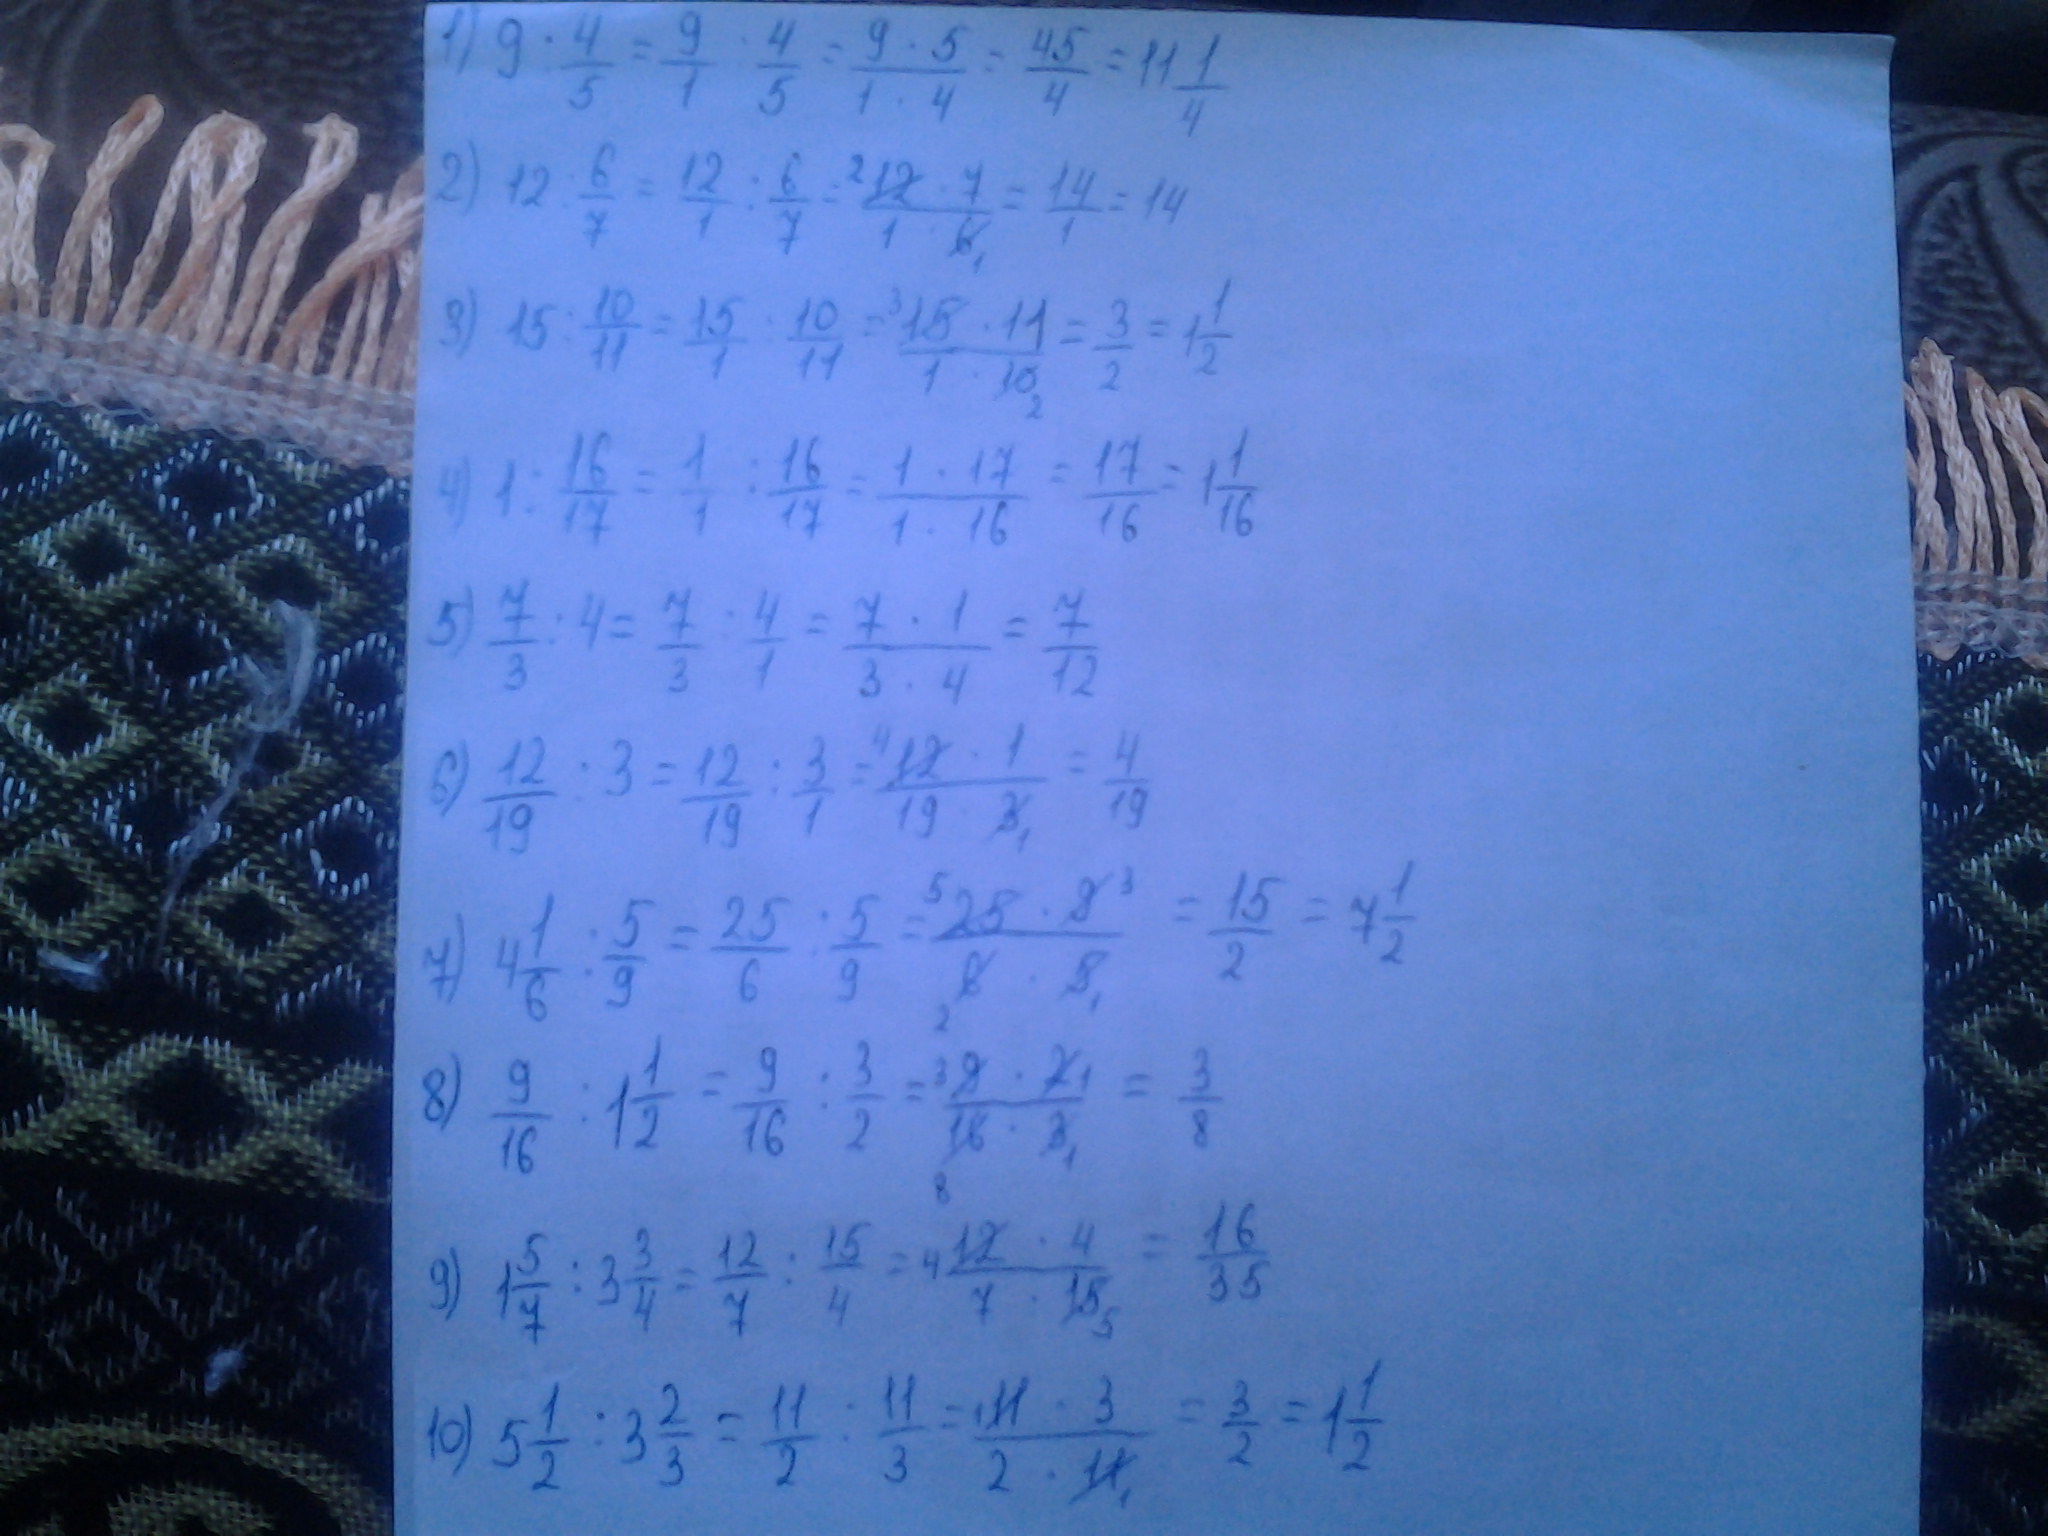 1) 9 · 4/5 = 9/1 · 4/5 = 9 · 5/1 · 4 = 45/4 = 11 1/4
2) 12 : 6/7 = 12/1 : 6/7 = ²12 · 7/1 · 6₁ = 14/1 = 14
3) 15 : 10/11 = 15/1 : 10/11 = ³15 · 11/1 · 10₂ = 3/2 = 1 1/2
4) 1 : 16/17 = 1/1 : 16/17 = 1 · 17/1 · 16 = 17/16 = 1 1/16
5) 7/3 : 4 = 7/3 : 4/1 = 7 · 1/3 · 4 = 7/12
6) 12/19 : 3 = 12/19 : 3/1 = ⁴12 · 1/19 · 3₁ = 4/19
7) 4 1/6 : 5/9 = 25/6 : 5/9 = ⁵25 · 9³/₂6 · 5₁ = 15/2 = 7 1/2
8) 9/16 : 1 1/2 = 9/16 : 3/2 = ³9 · 2₁/₈16 · 3₁ = 3/8
9) 1 5/7 : 3 3/4 = 12/7 : 15/4 = ₄12 · 4/7 · 15₅ = 16/35
10) 5 1/2 : 3 2/3 = 11/2 : 11/3 = ₁11 · 3/2 · 11₁ = 3/2 = 1 1/2